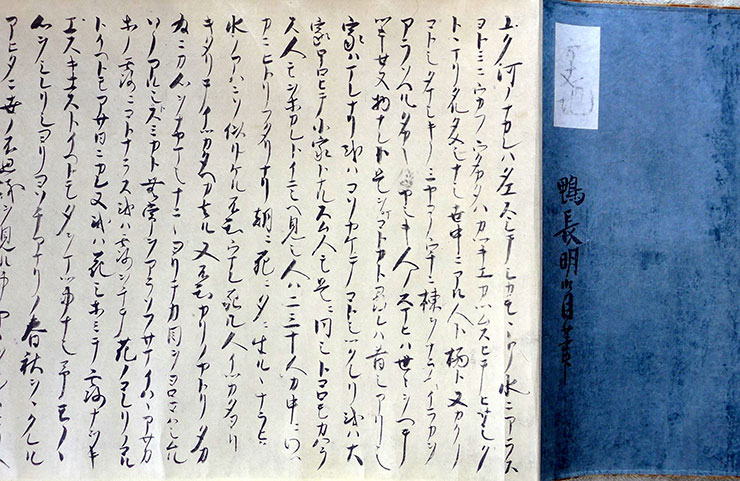 方丈記
鴨長明自筆
ユク河ノナカレハタエスシテシカモヽトノ水ニアラス
ヨトミニウカフウタカタハカツキエカツムスヒテヒサシク
トヽマリタルタメシナシ世中ニアル人ト栖ト又カクノ
コトシタマシキノミヤコノウチニ棟ヲナラヘイラカヲ
アラソヘルタカキイヤシキ人ノスマヒハ世々ヲヘテ
ツキセヌ物ナレト是ヲマコトカト尋レハ昔シアリシ
家ハマレナリ或ハコソヤケテコトシツクレリ或ハ大
家ホロヒテ小家トナルスム人モ是ニ同シトコロモカハラ
ス人モヲホカレトイニシヘ見シ人ハ二三十人カ中ニワツ
カニヒトリフタリナリ朝ニ死ニ夕ニ生ルヽナラヒ
水ノアハニソ似リケル不知ウマレ死ル人イツカタヨリ
キタリテイツカタヘカ去ル又不知カリノヤトリタカ
為ニカ心ヲナヤマシナニヽヨリテカ目ヲヨロコハシムル
ソノアルシトスミカト無常ヲアラソフサマイハヽアサカ
ホノ露ニコトナラス或ハ露ヲチテ花ノコレリノコル
トイヘトモアサ日ニカレヌ或ハ花シホミテ露ナヲキ
エスキエストイヘトモタヲマツ事ナシ予モノヽ
心ヲシレリシヨリヨソチアマリノ春秋ヲヽクレル
アヒタニ世ノ不思議ヲ見ル事